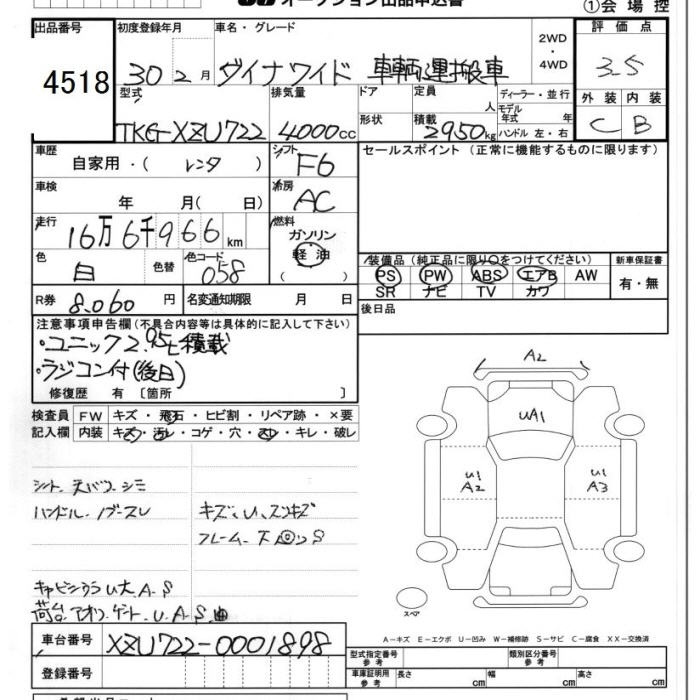 ①会場控
出品番号
4518
初度登録年月
30 2月
車名・グレード
ダイナワイド 車輌運搬車
2WD
・
4WD
評価点
3.5
外装 内装
C B
型式
TKG-XZU722
排気量
4000cc
ドア
形状
定員
人
積載
2950kg
ディーラー・並行
モデル
年式 年
ハンドル 左・右
車歴
自家用・( レンタ )
シフト
F6
セールスポイント (正常に機能するものに限ります)
車検
年 月( 日)
冷房
AC
走行
16万6千966km
燃料
ガソリン
軽油
( )
色
白
色替
色コード
058
装備品(純正品に限り○をつけてください)
PS PW ABS エアB AW
SR ナビ TV カワ
新車保証書
有・無
R券
8,060円
名変通知期限 月 日
後日品
注意事項申告欄(不具合内容等は具体的に記入して下さい)
・ユニック2.95t積載
・ラジコン付(後日)
修復歴 有 〔箇所 〕
検査員
記入欄
FW キズ・飛石・ヒビ割・リペア跡・×要
内装 キズ・汚レ・コゲ・穴・スレ・キレ・破レ
シート、天バリ、シミ
ハンドル、ノブースレ
キズ、U、スリキズ
フレーム、下回りS
キャビンウラU大、A、S
荷台、アオリ、ゲート、U、A、S、曲
A2
UA1
U1
A2
U1
A3
スペア
A-キズ E-エクボ U-凹み W-補修跡 S-サビ C-腐食 XX-交換済
車台番号
XZU722-0001898
登録番号
型式指定番号
参考
類別区分番号
参考
車庫証明用
参考
長さ cm 幅 cm 高さ cm